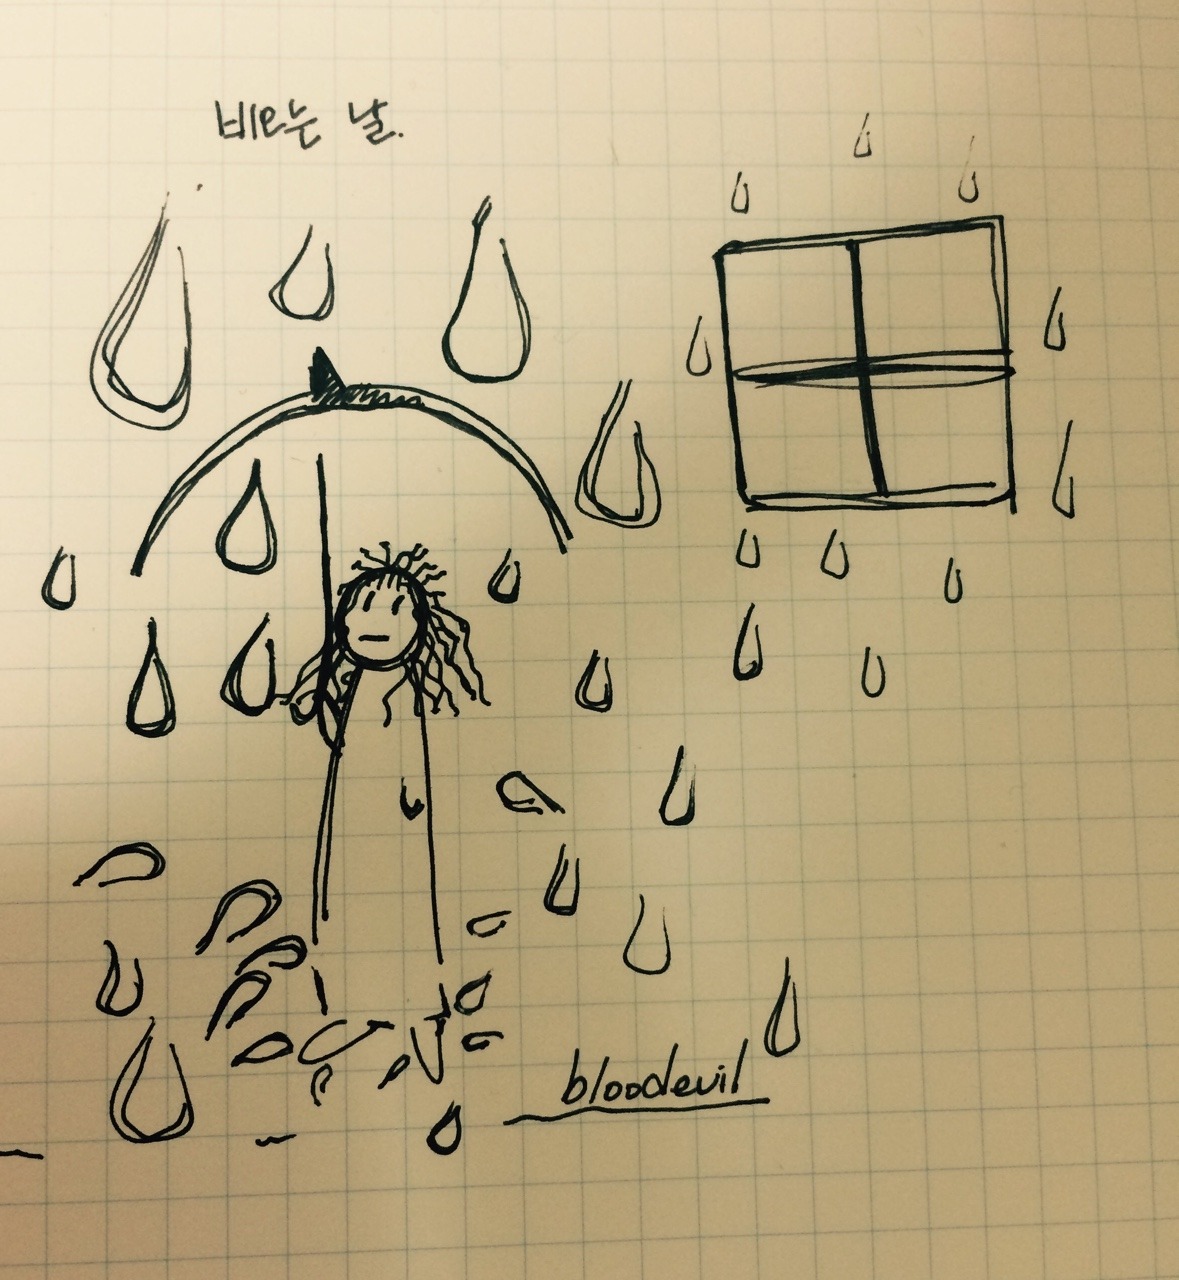 비오는 날.
bloodevil